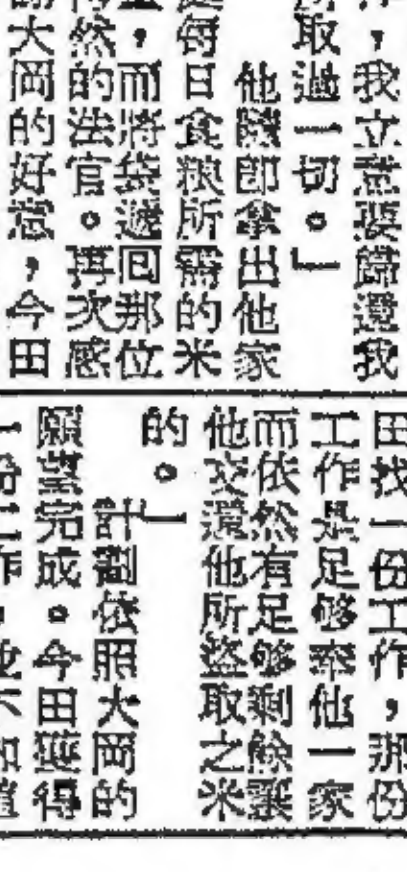 ，我立意要歸還我
所取過一切。」
他隨即拿出他家
每日食粮所需的米
，而將袋遞回那位
然的法官。再次感
大岡的好意，今田
田找一份工作，那份
工作是足够奉他一家
而依然有足够剩餘讓
他交還他所盜取之米
的。」
計劃依照大岡的
願望完成。今田獲得
一份工作，並不知道